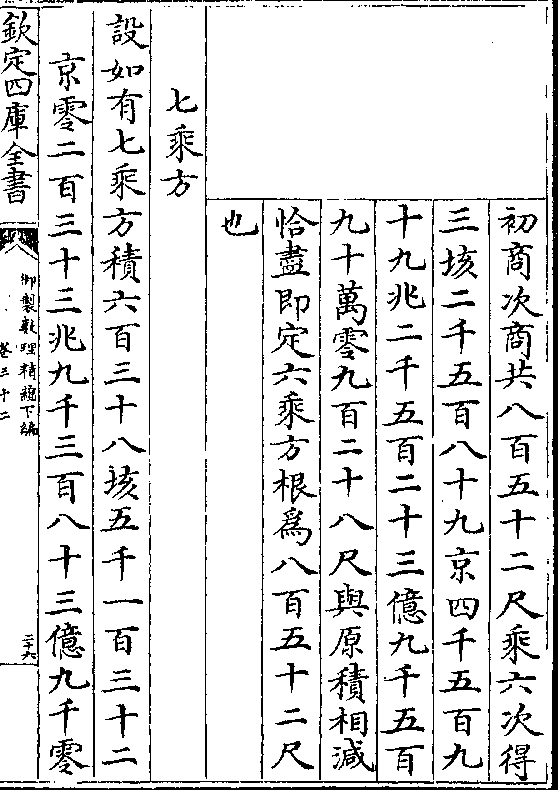 初商次商共八百五十二尺乘六次得
三垓二千五百八十九京四千五百九
十九兆二千五百二十三億九千五百
九十萬零九百二十八尺與原積相減
恰盡即定六乘方根為八百五十二尺
也
七乘方
設如有七乘方積六百三十八垓五千一百三十二
京零二百三十三兆九千三百八十三億九千零
欽定四庫全書
御製數理精蘊下編
卷三十二
二十六